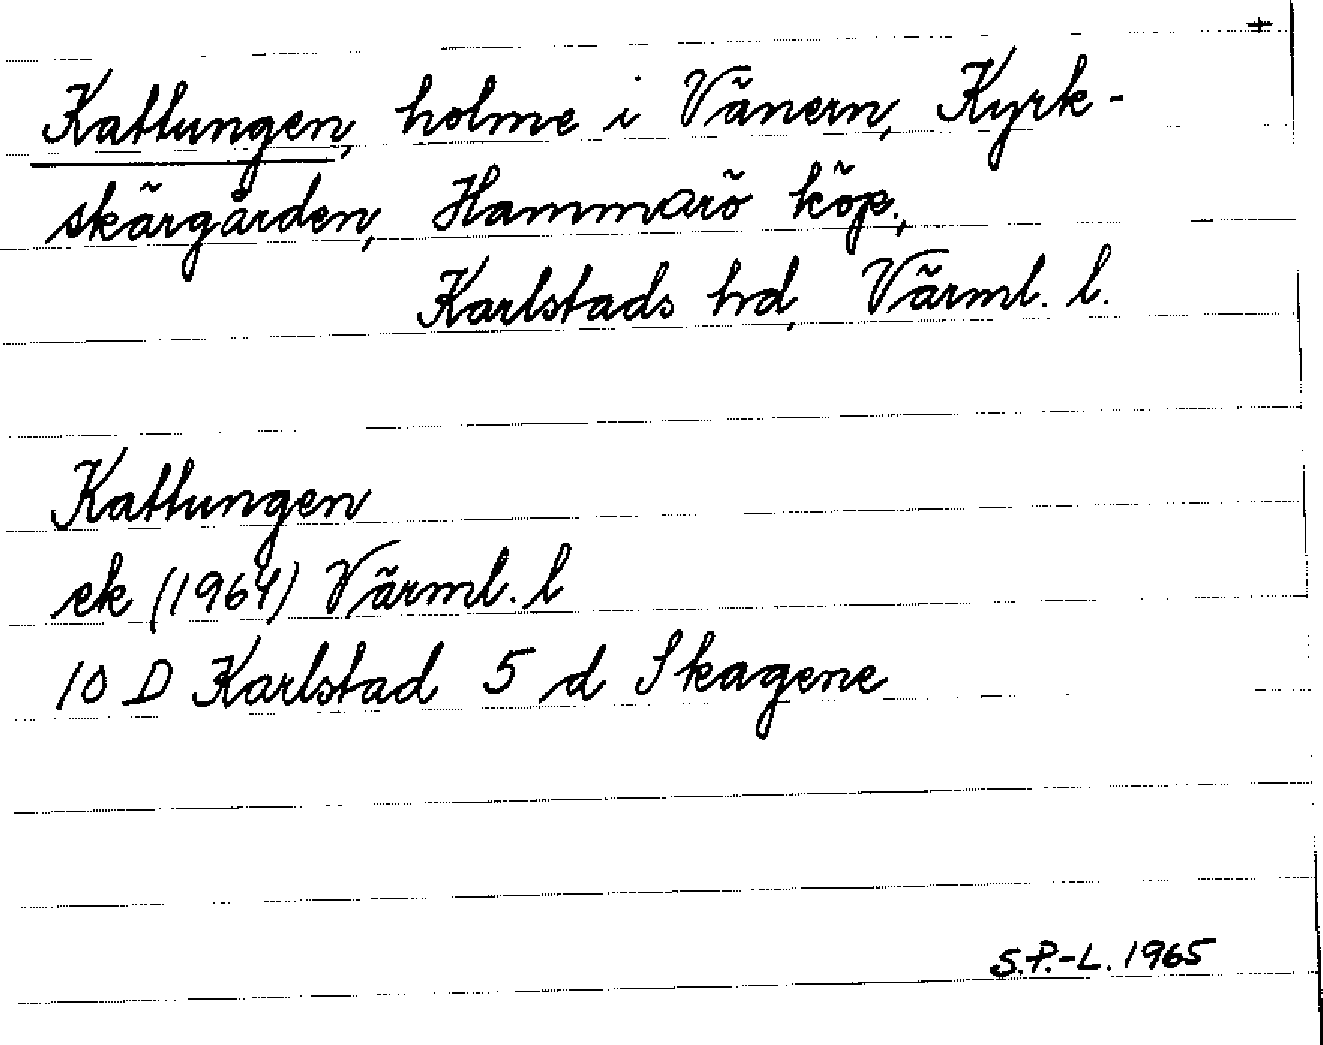 +
Kattungen, holme i Vänern, Kyrk-
skärgården, Hammarö köp.,
Karlstads hd, Värml. l.
Kattungen
ek (1964) Värml. l
10 D Karlstad 5 d Skagene
S.P.-L. 1965